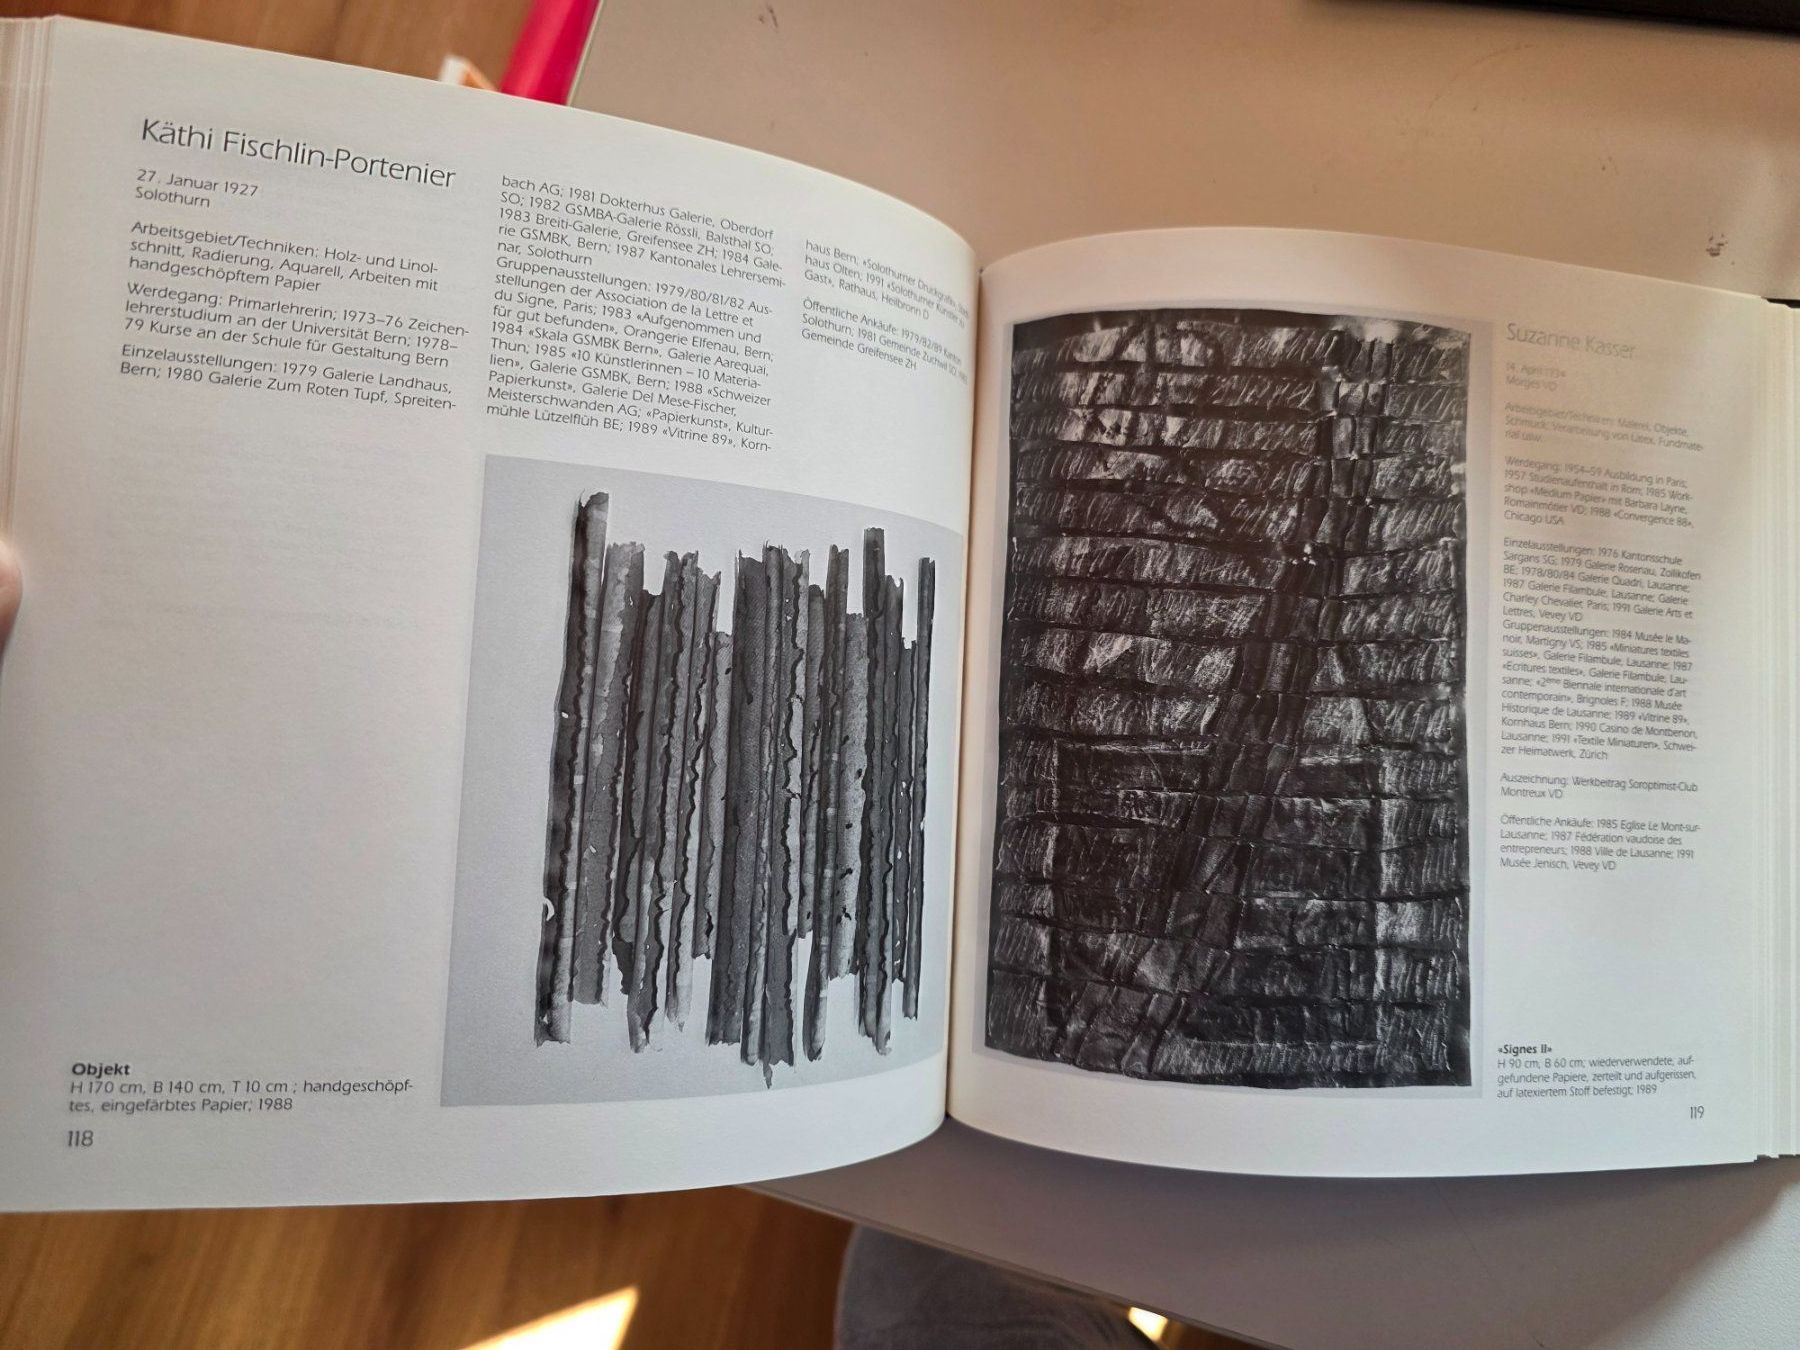 Käthi Fischlin-Portenier
27. Januar 1927
Solothurn
Arbeitsgebiet/Techniken: Holz- und Linol-
schnitt, Radierung, Aquarell, Arbeiten mit
handgeschöpftem Papier
Werdegang: Primarlehrerin; 1973–76 Zeichen-
lehrerstudium an der Universität Bern; 1978–
79 Kurse an der Schule für Gestaltung Bern
Einzelausstellungen: 1979 Galerie Landhaus,
Bern; 1980 Galerie Zum Roten Tupf, Spreiten-
bach AG; 1981 Dokterhus Galerie, Oberdorf
SO; 1982 GSMBA-Galerie Rössli, Balsthal SO;
1983 Breiti-Galerie, Greifensee ZH; 1984 Gale-
rie GSMBK, Bern; 1987 Kantonales Lehrersemi-
nar, Solothurn
Gruppenausstellungen: 1979/80/81/82 Aus-
stellungen der Association de la Lettre et
du Signe, Paris; 1983 «Aufgenommen und
für gut befunden», Orangerie Elfenau, Bern;
1984 «Skala GSMBK Bern», Galerie Aarequai,
Thun; 1985 «10 Künstlerinnen – 10 Materia-
lien», Galerie GSMBK, Bern; 1988 «Schweizer
Papierkunst», Galerie Del Mese-Fischer,
Meisterschwanden AG; «Papierkunst», Kultur-
mühle Lützelflüh BE; 1989 «Vitrine 89», Korn-
haus Bern; «Solothurner Druckgrafik»,
haus Olten; 1991 «Solothurner Künstler zu
Gast», Rathaus, Heilbronn D
Öffentliche Ankäufe: 1979/82/89 Kanton
Solothurn; 1981 Gemeinde Zuchwil SO;
Gemeinde Greifensee ZH
Objekt
H 170 cm, B 140 cm, T 10 cm ; handgeschöpf-
tes, eingefärbtes Papier; 1988
118
Suzanne Kasser
14. April 1934
Morges VD
Arbeitsgebiet/Techniken: Malerei, Objekte,
Schmuck; Verarbeitung von Latex, Fundmate-
rial usw.
Werdegang: 1954–59 Ausbildung in Paris;
1957 Studienaufenthalt in Rom; 1985 Work-
shop «Medium Papier» mit Barbara Layne,
Romainmôtier VD; 1988 «Convergence 88»,
Chicago USA
Einzelausstellungen: 1976 Kantonsschule
Sargans SG; 1979 Galerie Rosenau, Zollikofen
BE; 1978/80/84 Galerie Quadri, Lausanne;
1987 Galerie Filambule, Lausanne; Galerie
Charley Chevalier, Paris; 1991 Galerie Arts et
Lettres, Vevey VD
Gruppenausstellungen: 1984 Musée le Ma-
noir, Martigny VS; 1985 «Miniatures textiles
suisses», Galerie Filambule, Lausanne; 1987
«Ecritures textiles», Galerie Filambule, Lau-
sanne; «2ème Biennale internationale d'art
contemporain», Brignoles F; 1988 Musée
Historique de Lausanne; 1989 «Vitrine 89»,
Kornhaus Bern; 1990 Casino de Montbenon,
Lausanne; 1991 «Textile Miniaturen», Schwei-
zer Heimatwerk, Zürich
Auszeichnung: Werkbeitrag Soroptimist-Club
Montreux VD
Öffentliche Ankäufe: 1985 Eglise Le Mont-sur-
Lausanne; 1987 Fédération vaudoise des
entrepreneurs; 1988 Ville de Lausanne; 1991
Musée Jenisch, Vevey VD
«Signes II»
H 90 cm, B 60 cm; wiederverwendete, auf-
gefundene Papiere, zerteilt und aufgerissen,
auf latexiertem Stoff befestigt; 1989
119